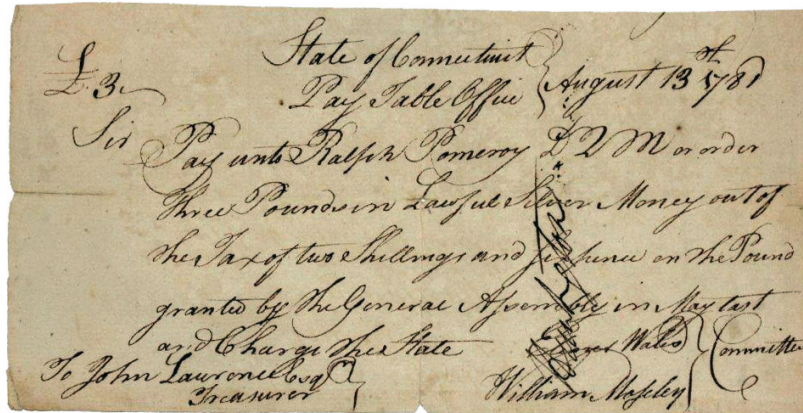 State of Connecticut
£3,, Pay Table Office } August 13th 1781
Sir
Pay unto Ralph Pomeroy D Q M or order
three Pounds in Lawful Silver Money out of
the Tax of two Shillings and sixpence on the Pound
granted by the General Assembly in May last
and Charge the State
Wales } Committee
William Moseley
To John Lawrence Esqr }
Treasurer